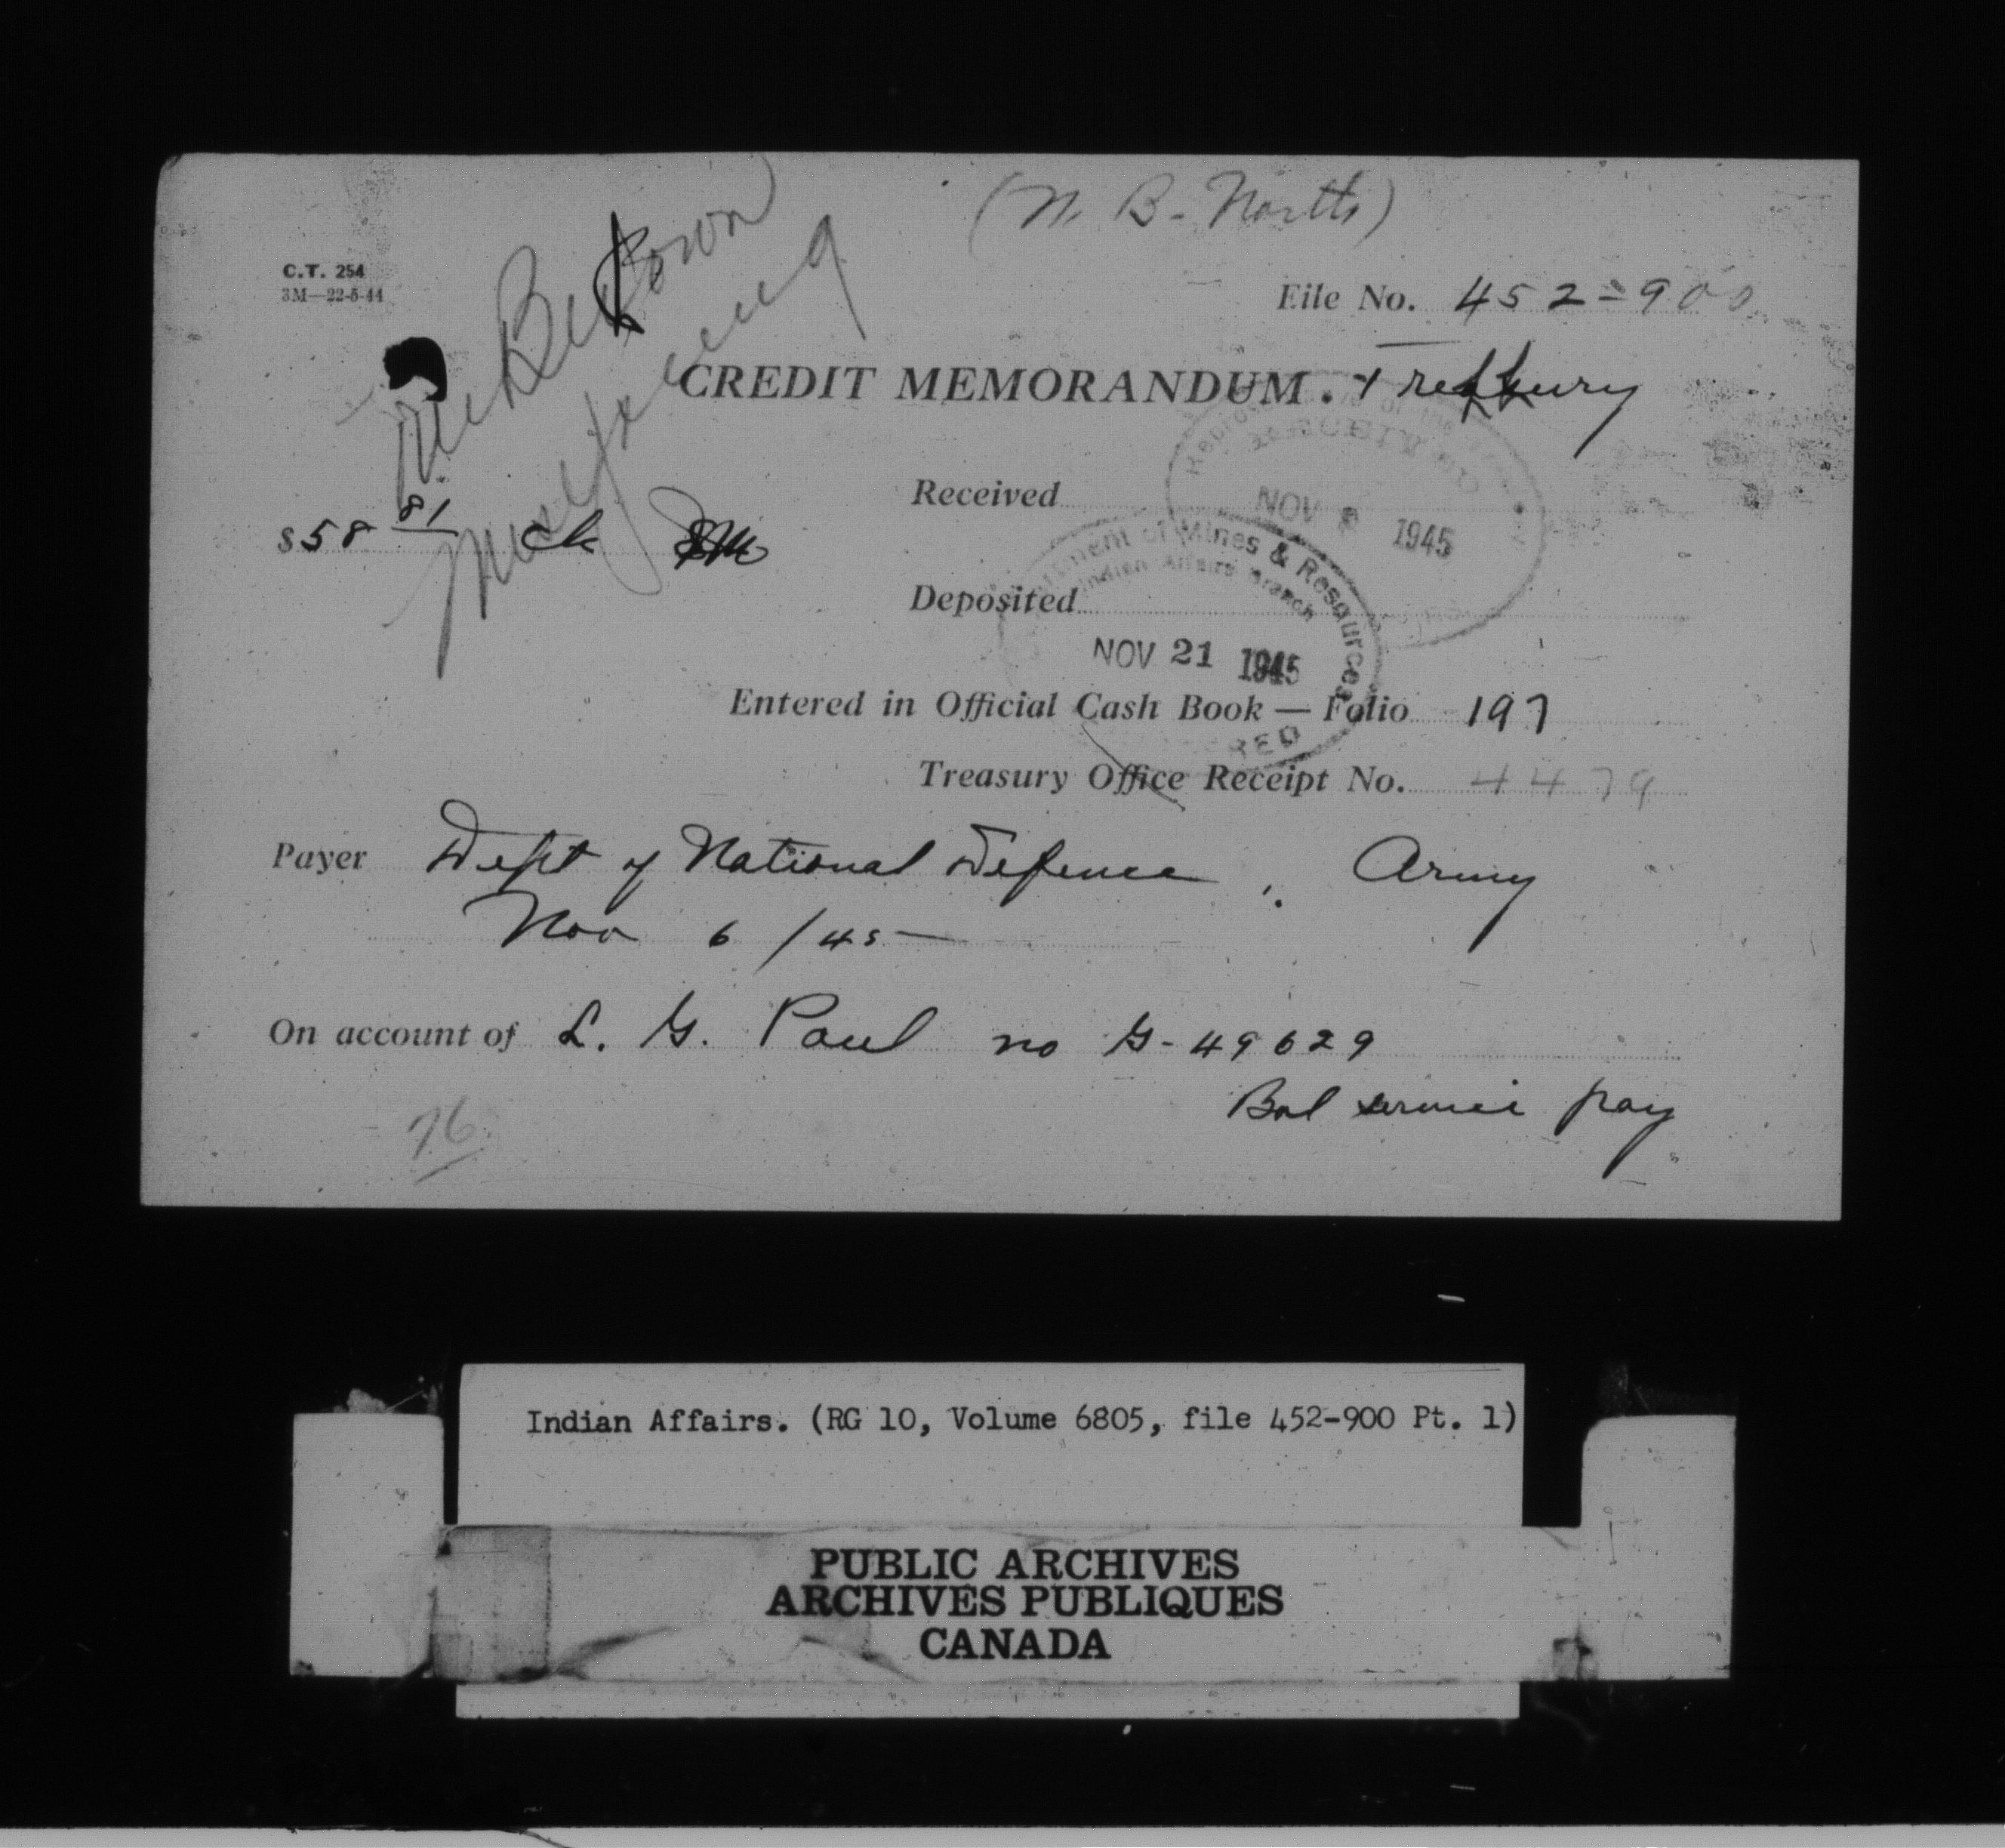 (N. B. North)
C.T. 254
3M—22-5-44
File No. 452-900
CREDIT MEMORANDUM. Treasury
Mr Brown
$58 81 ck
Received
NOV 1945
Department of Mines & Resources
Indian Affairs Branch
Deposited
NOV 21 1945
Entered in Official Cash Book — Folio 197
Treasury Office Receipt No. 4479
Payer Dept of National Defence, Army
Nov 6/45
On account of L. G. Paul no G-49629
Bal service pay
76
Indian Affairs. (RG 10, Volume 6805, file 452-900 Pt. 1)
PUBLIC ARCHIVES
ARCHIVES PUBLIQUES
CANADA